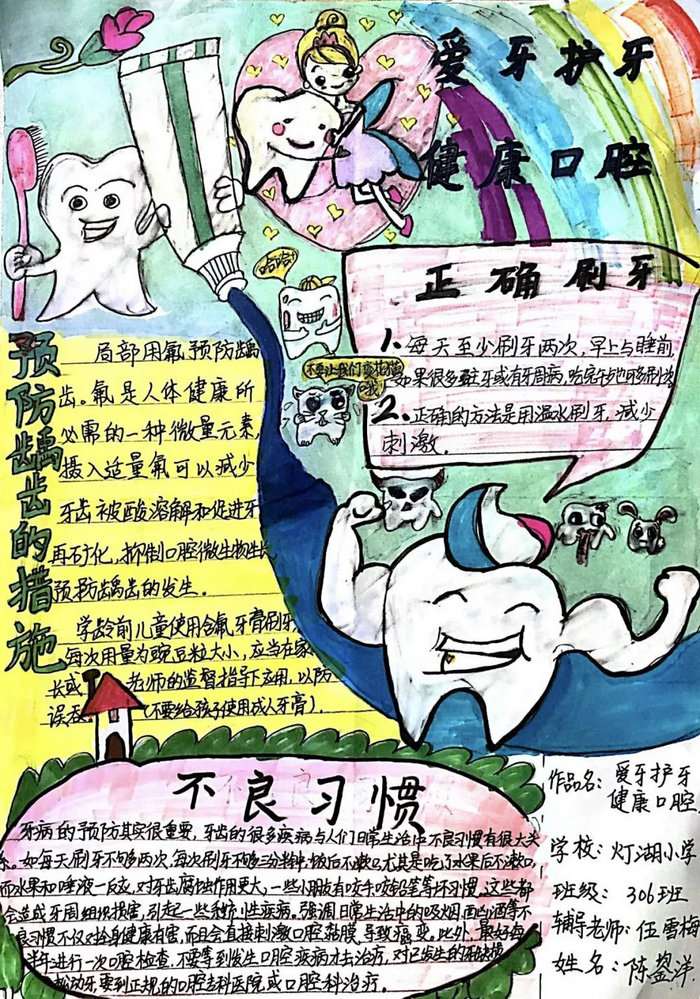 爱牙护牙
健康口腔
正确刷牙
1. 每天至少刷牙两次,早上与睡前
如果很多蛀牙或有牙周病,
2. 正确的方法是用温水刷牙,减少
刺激.
哈哈!
不要让我们变花猫
哦
预防龋齿的措施
局部用氟预防龋
齿。氟是人体健康所
必需的一种微量元素,
摄入适量氟可以减少
牙齿被酸溶解和促进牙
再矿化,抑制口腔微生物生长
预防龋齿的发生.
学龄前儿童使用含氟牙膏刷牙
每次用量为豌豆粒大小,应当在家
长或老师的监督指导下应用,以防
误吞(不要给孩子使用成人牙膏).
不良习惯
牙病的预防其实很重要,牙齿的很多疾病与人们日常生活中不良习惯有很大关
系。如每天刷牙不够两次,每次刷牙不够三分钟,饭后不漱口,尤其是吃了水果后不漱口,
而水果和唾液一反应,对牙齿腐蚀作用更大,一些小朋友有咬手,咬铅笔等坏习惯,这些都
会造成牙周组织损害,引起一些牙病。强调日常生活中的吸烟酗酒等不
良习惯不仅对全身健康有害,而且会直接刺激口腔黏膜,导致癌变。此外,最好每
半年进行一次口腔检查,不要等到发生口腔疾病才去治疗,对已发生的
松动牙要到正规的口腔专科医院或口腔科治疗.
作品名:爱牙护牙
健康口腔
学校:灯湖小学
班级:306班
辅导老师:伍雪梅
姓名:陈洋